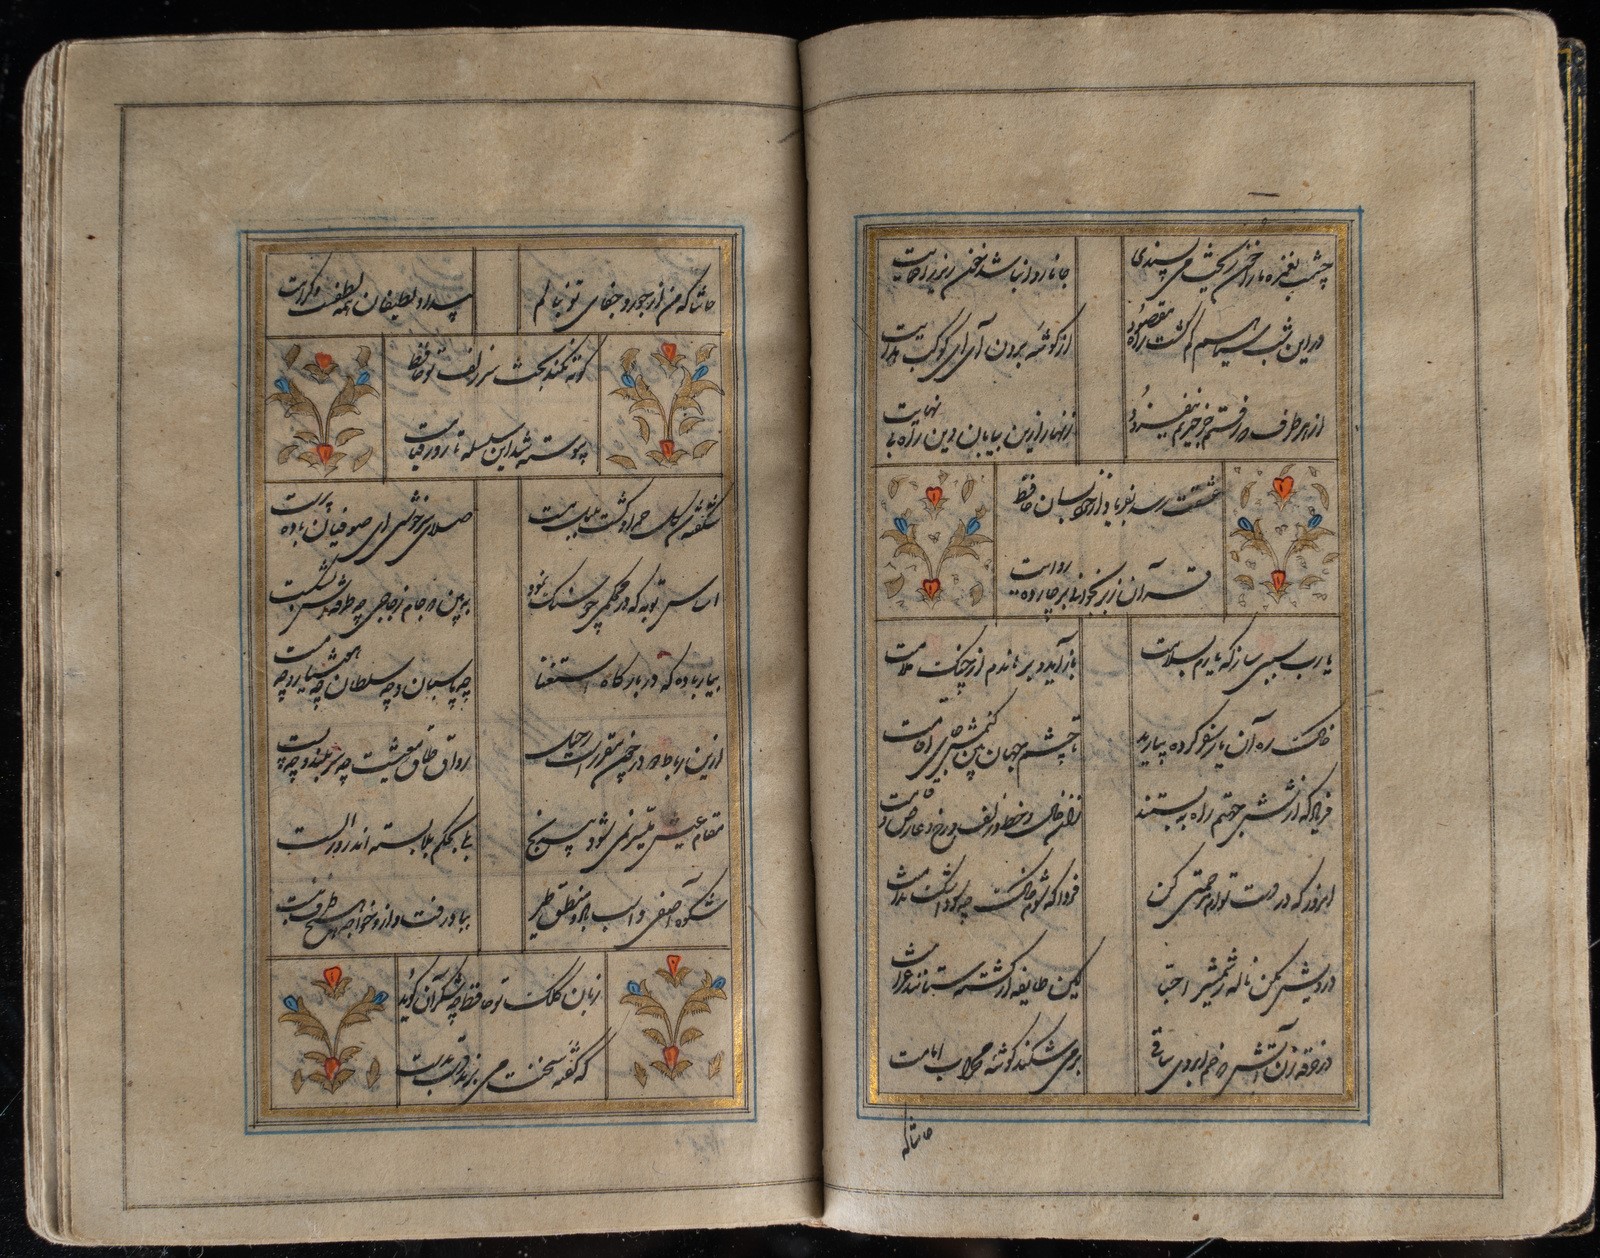 چشمت بغمزه ما را خون ریخت می پسندی
جانا روا نباشد خون ریز را حمایت
در این شب سیاهم گم گشت راه مقصود
از گوشه برون آی ای کوکب هدایت
از هر طرف که رفتم جز حیرتم نیفزود
زنهار ازین بیابان وین راه بی نهایت
عشقت رسد بفریاد ار خود بسان حافظ
قرآن ز بر بخوانی بر چارده روایت
یا رب سببی ساز که یارم بسلامت
باز آید و برهاندم از چنگ ملامت
خاک ره آن یار سفر کرده بیارید
تا چشم جهان بین کنمش جای اقامت
فریاد که از شش جهتم راه ببستند
آن خال و خط و زلف و رخ و عارض و قامت
امروز که در دست توام مرحمتی کن
فردا که شوم خاک چه سود اشک ندامت
درویش مکن ناله ز شمشیر احبا
کین طایفه از کشته ستانند غرامت
در خرقه زن آتش که خم ابروی ساقی
بر می شکند گوشه محراب امامت
حاشا که
حاشا که من از جور و جفای تو بنالم
بیداد لطیفان همه لطفست و کرامت
کوته نکند بحث سر زلف تو حافظ
پیوسته شد این سلسله تا روز قیامت
شکفته شد گل حمرا و گشت بلبل مست
صلای سرخوشی ای صوفیان باده پرست
اساس توبه که در محکمی چو سنگ نمود
ببین که جام زجاجی چه طرفه اش بشکست
بیار باده که در بارگاه استغنا
چه پاسبان و چه سلطان چه هشیار و چه مست
ازین رباط دو در چون ضرورتست رحیل
رواق و طاق معیشت چه سربلند و چه پست
مقام عیش میسر نمی شود بی رنج
بلی بحکم بلا بسته اند روز الست
شکوه آصفی و اسب باد و منطق طیر
بباد رفت و ازو خواجه هیچ طرف نبست
زبان کلک تو حافظ چه شکر آن گوید
که گفته سخنت می برند دست بدست